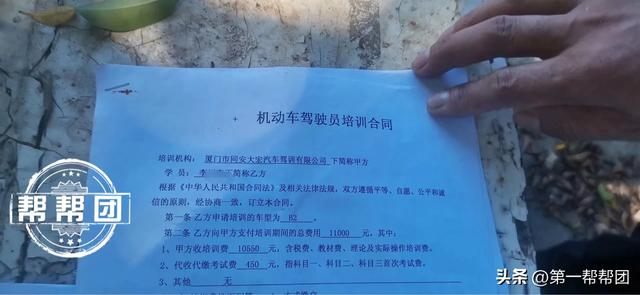 机动车驾驶员培训合同
培训机构：厦门市同安大宏汽车驾训有限公司 下简称甲方
学 员：李 下简称乙方
根据《中华人民共和国合同法》及相关法律法规，双方遵循平等、自愿、公平和诚
信的原则，经协商一致，订立本合同。
第一条 乙方申请培训的车型为 B2 。
第二条 乙方向甲方支付培训期间的总费用 11000 元，其中：
1、甲方收培训费 10550 元，含税费、教材费、理论及实际操作培训费。
2、代收代缴考试费 450 元，指科目一、科目二、科目三首次考试费。
3、其他 无
帮帮团
头条 @第一帮帮团